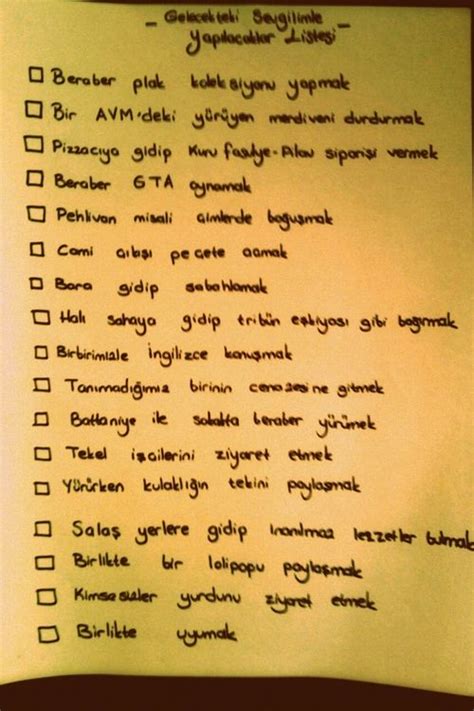 Gelecekteki Sevgilimle
Yapılacaklar Listesi
Beraber plak koleksiyonu yapmak
Bir AVM'deki yürüyen merdiveni durdurmak
Pizzacıya gidip Kuru fasulye-Pilav siparişi vermek
Beraber GTA oynamak
Pehlivan misali çimlerde boğuşmak
Cami çıkışı peçete açmak
Bara gidip sabahlamak
Halı sahaya gidip tribün eşkiyası gibi bağırmak
Birbirimizle İngilizce konuşmak
Tanımadığımız birinin cenazesine gitmek
Battaniye ile sokakta beraber yürümek
Tekel işçilerini ziyaret etmek
Yürürken kulaklığın tekini paylaşmak
Salaş yerlere gidip inanılmaz lezzetler bulmak
Birlikte bir lolipopu paylaşmak
Kimsesizler yurdunu ziyaret etmek
Birlikte uyumak